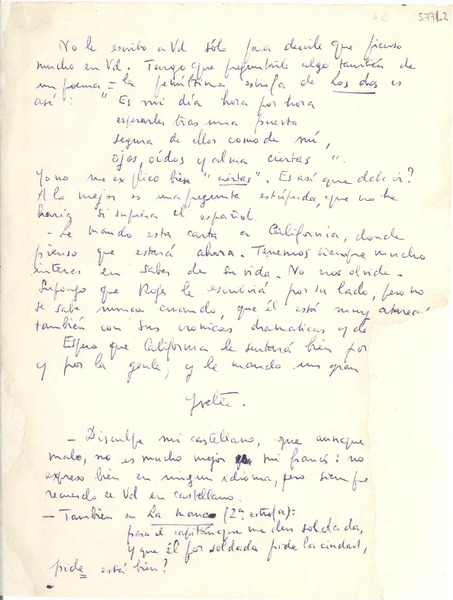 577122
No le escribo a Vd sólo para decirle que pienso
mucho en Vd. Tengo que preguntarle algo también de
un poema = la penúltima estrofa de Los dos es
así : " Es mi día hora por hora
esperarles tras una puerta
segura de ellos como de mí,
ojos, oídos y alma ciertas ".
Yo no me explico bien "ciertas". Es así que debe ir?
A lo mejor es una pregunta estúpida, que no he
haría si supiera el español.
- Le mando esta carta a California, donde
pienso que estará ahora. Tenemos siempre mucho
interes en saber de su vida. No nos olvide -
Supongo que Roger le escribirá por su lado, pero no
se sabe nunca cuando, que él está muy
también con sus cronicas dramaticas y de
Espero que California le sentará bien por
y por la gente, y le mando un gran
Yvette.
- Disculpe mi castellano, que aunque
malo, no es mucho mejor mi francés : no
expreso bien en ningun idioma, pero siempre
recuerdo a Vd en castellano.
- Tambien en La manca (2ª estrofa):
para el capitán que me den soldada,
y que él por soldada pide la ciudad,
pide está bien?